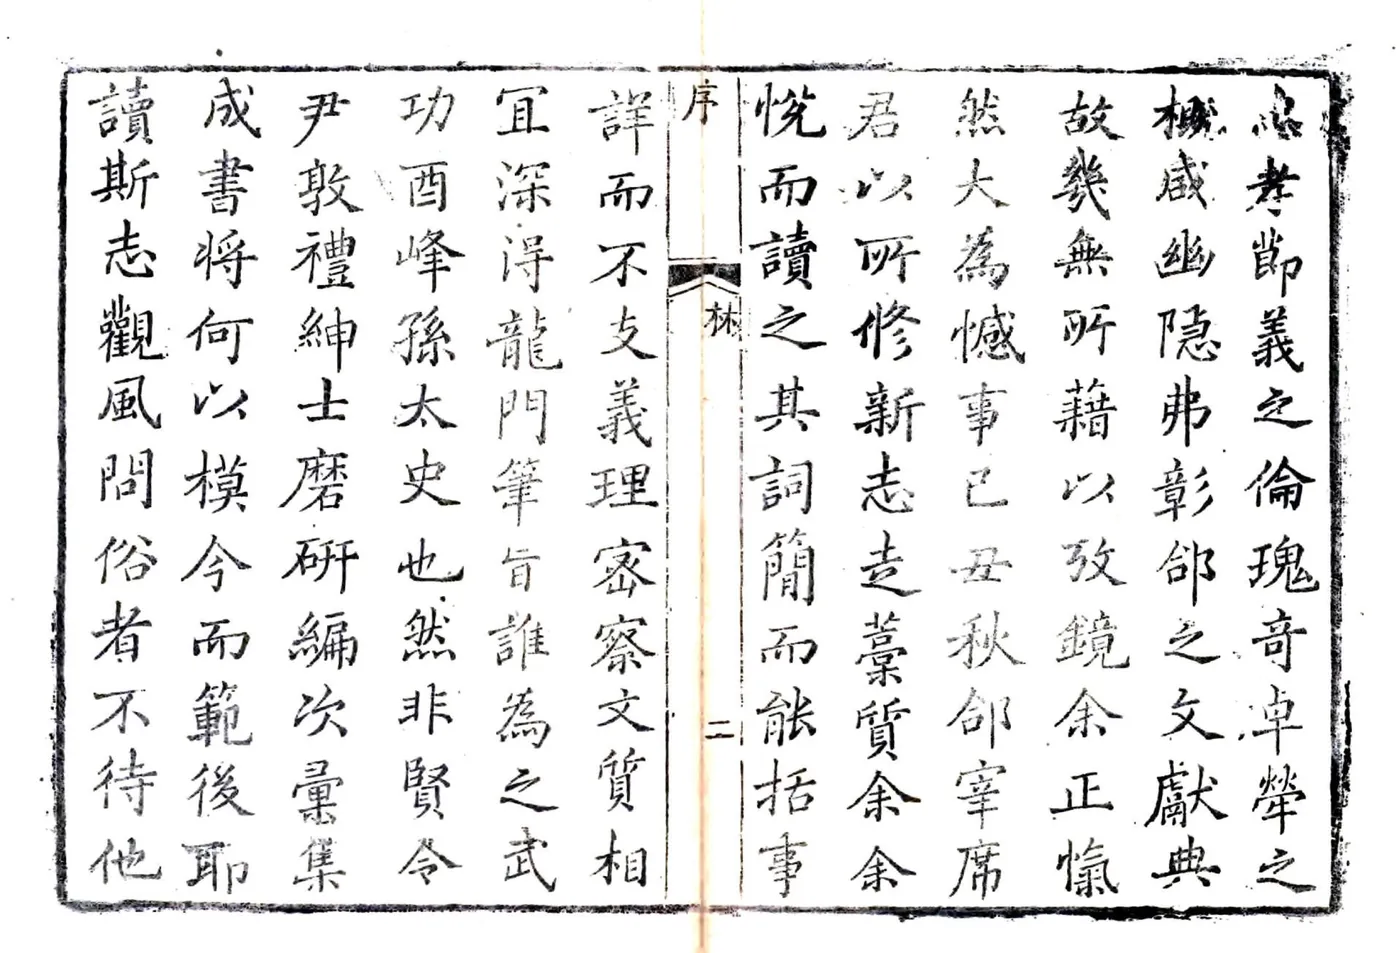 忠孝節義之倫瑰奇卓犖之
概咸幽隱弗彰郃之文獻典
故幾無所藉以攷鏡余正愾
然大為憾事已丑秋郃宰席
君以所修新志走藁質余余
悅而讀之其詞簡而能括事
序
林
二
詳而不支義理密察文質相
宜深得龍門筆旨誰為之武
功酉峰孫太史也然非賢令
尹敦禮紳士磨研編次彙集
成書將何以模今而範後耶
讀斯志觀風問俗者不待他